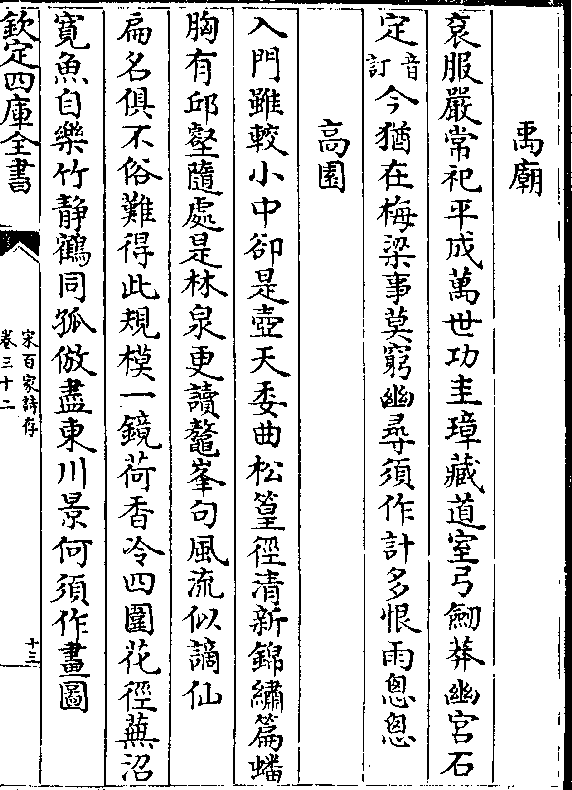 禹廟
袞服嚴常祀平成萬世功圭璋藏道室弓劒莽幽宮石
定音訂今猶在梅梁事莫窮幽尋須作計多恨雨悤悤
高園
入門雖較小中卻是壺天委曲松篁徑清新錦繡篇蟠
胸有邱壑隨處是林泉更讀鼇峯句風流似謫仙
扁名俱不俗難得此規模一鏡荷香冷四圍花徑蕪沼
寛魚自樂竹静鶴同孤倣盡東川景何須作畫圖
欽定四庫全書
宋百家詩存
卷三十二
十三